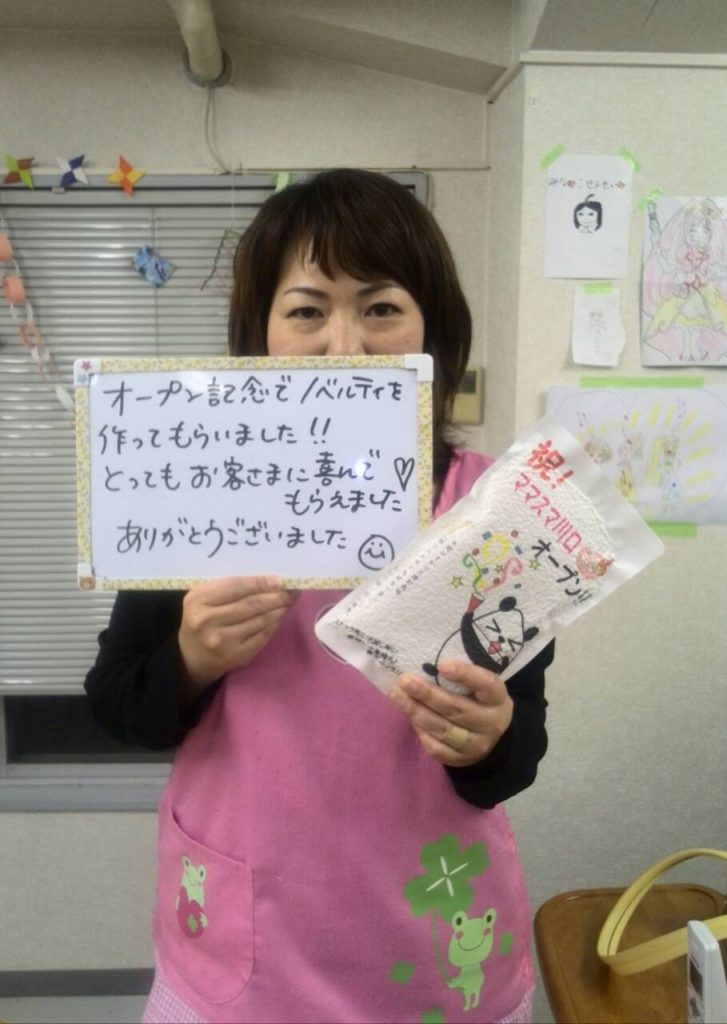 オープン記念でノベルティを
作ってもらいました!!
とってもお客さまに喜んで
もらえました♡
ありがとうございました
祝!
ママスマ川口
オープン!!